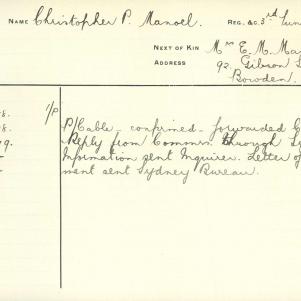 NAME Christopher P. Manoel. REG. &C. 3rd
NEXT OF KIN Mrs E. M.
ADDRESS 92. Gibson
Bowden.
P/Cable - confirmed - forwarded
Reply from Commrs. through
Information sent Inquirer. Letter of
sent Sydney Bureau.